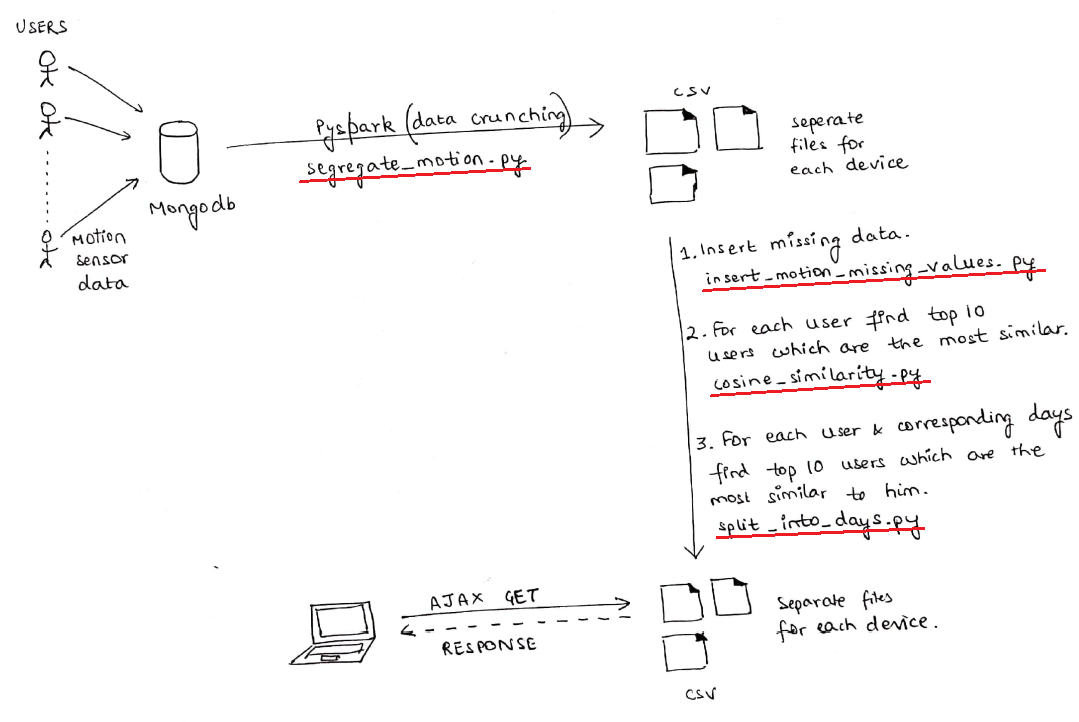 USERS
Motion
sensor
data
Mongodb
Pyspark (data crunching)
segregate_motion.py
CSV
seperate
files for
each device
1. Insert missing data.
insert_motion_missing_values.py
2. For each user find top 10
users which are the most similar.
cosine_similarity.py
3. For each user & corresponding days
find top 10 users which are the
most similar to him.
split_into_days.py
AJAX GET
RESPONSE
Separate files
for each device.
CSV